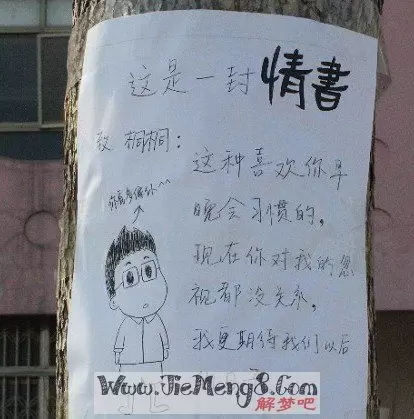 这是一封情書
致 桐桐：
这种喜欢你早
晚会习惯的，
现在你对我的忽
视都没关系，
我更期待我们以后
Www.JieMeng8.Com
解梦吧